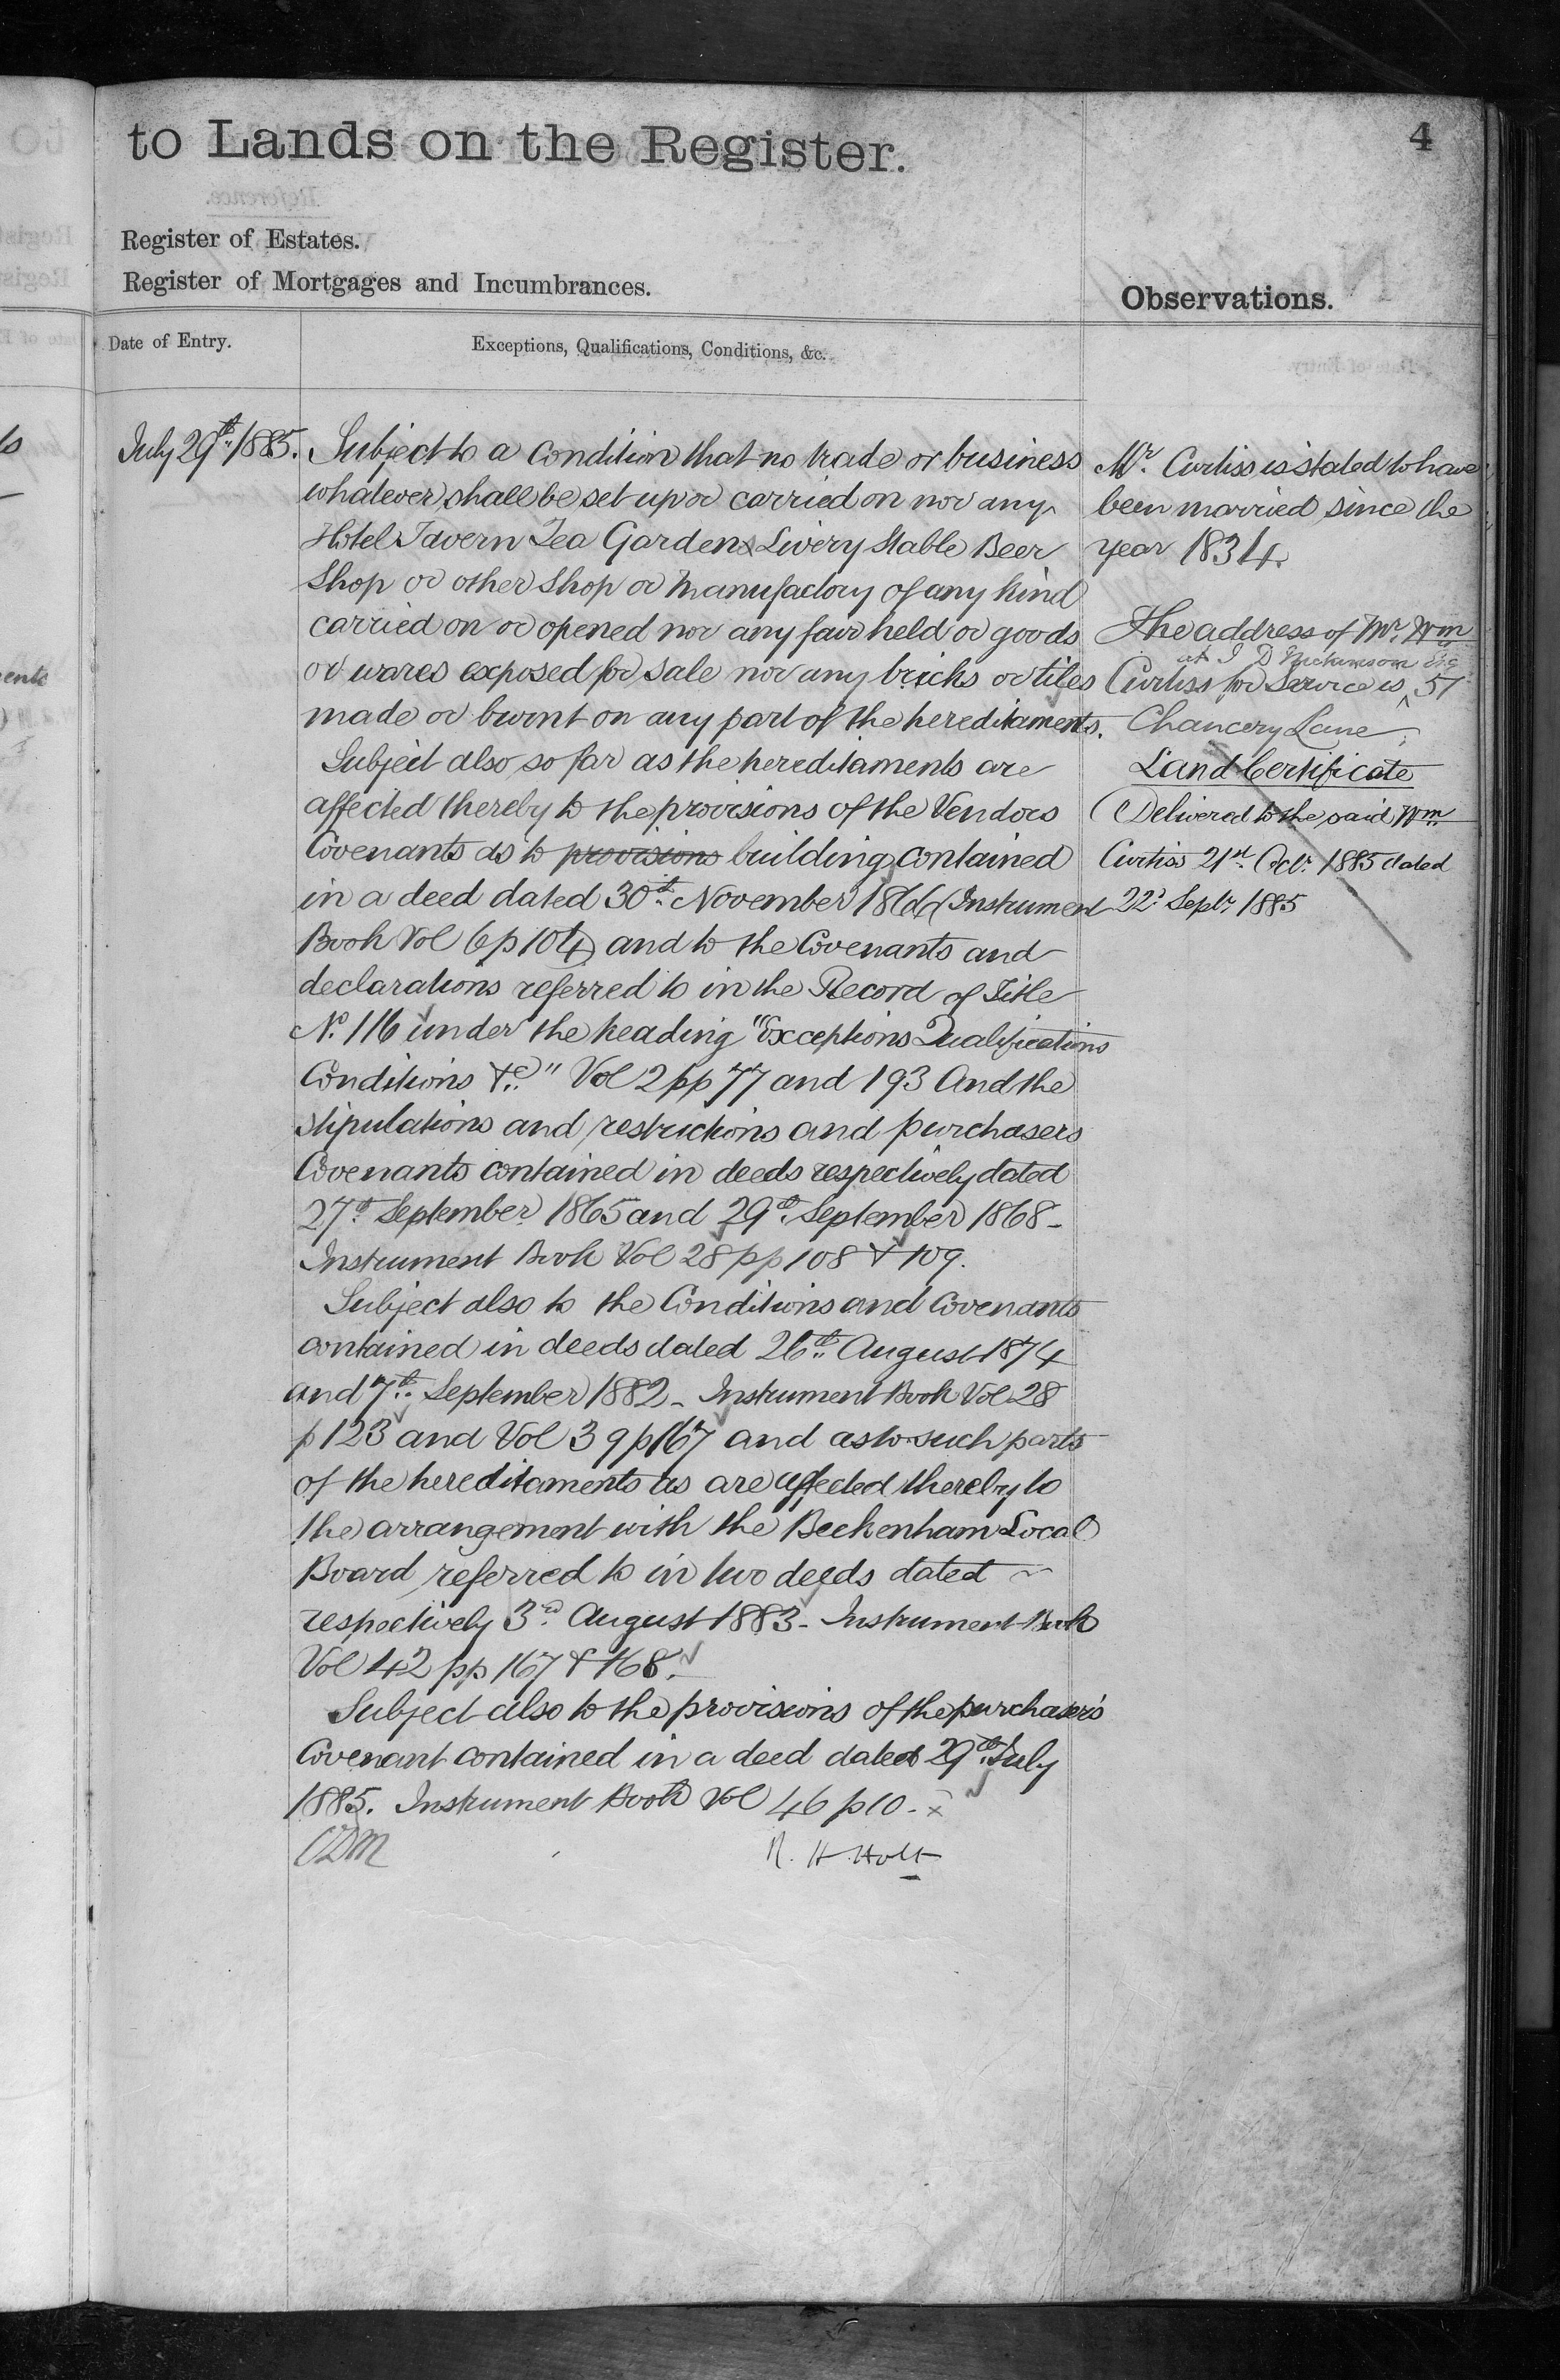 to Lands on the Register.
4
Register of Estates.
Register of Mortgages and Incumbrances.
Observations.
Date of Entry.
Exceptions, Qualifications, Conditions, &c.
July 29th 1885.
Subject to a Condition that no trade or business
whatever shall be set up or carried on nor any
Hotel Tavern Tea Gardens Livery Stable Beer
Shop or other Shop or Manufactory of any kind
carried on or opened nor any fair held or goods
or wares exposed for sale nor any bricks or tiles
made or burnt on any part of the hereditaments.
Subject also so far as the hereditaments are
affected thereby to the provisions of the Vendors
Covenants as to provisions building contained
in a deed dated 30th November 1866 (Instrument
Book Vol 6 p 104) and to the Covenants and
declarations referred to in the Record of Title
No. 116 under the heading "Exceptions Qualifications
Conditions &c." Vol 2 pp 77 and 193 And the
stipulations and restrictions and purchasers
Covenants contained in deeds respectively dated
27th September 1865 and 29th September 1868 -
Instrument Book Vol 28 pp 108 & 109.
Subject also to the Conditions and Covenants
contained in deeds dated 26th August 1874
and 7th September 1882 - Instrument Book Vol 28
p 123 and Vol 39 p 167 and as to such parts
of the hereditaments as are affected thereby to
the arrangement with the Beckenham Local
Board referred to in two deeds dated
respectively 3rd August 1883 - Instrument Book
Vol 42 pp 167 & 168.
Subject also to the provisions of the purchaser's
Covenant contained in a deed dated 29th July
1885. Instrument Book Vol 46 p 10 - x
CDM
R. H. Holt
Mr. Curtiss is stated to have
been married since the
year 1834.
The address of Mr. Wm
at J D
Curtiss for Service is ^ 57
Chancery Lane;
Land Certificate
Delivered to the said Wm
Curtiss 21st Octr. 1885 dated
22d Septr. 1885